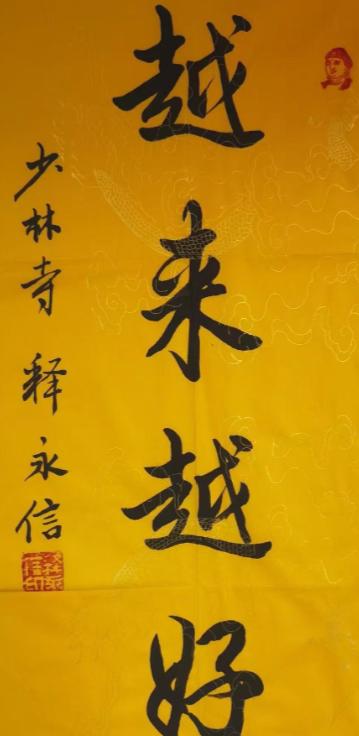 越来越好
少林寺 释永信